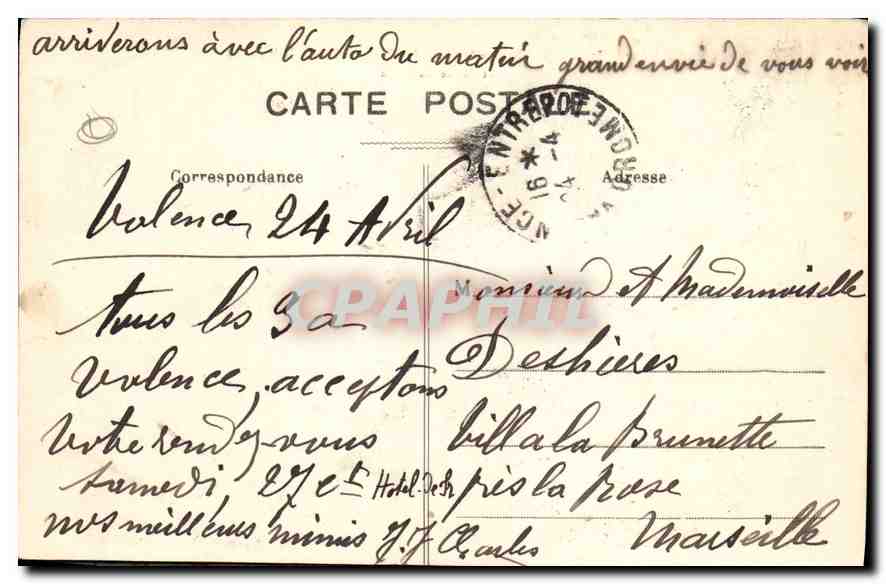 arriverons àvec l'auto du matin grand envie de vous voir
CARTE POSTALE
NCE-ENTREPOT DROME
16 * 24 -4
Correspondance
Adresse
Valence, 24 Avril
tous les 3 a
Valence, acceptons
Votre rendez-vous
Samedi, 27 et Hotel-De-Fr
nos meilleurs mimis J.J Charles
Monsieur et Mademoiselle
Deshieres
Villa la Brunette
près la Rose
Marseille
CPAPHIL